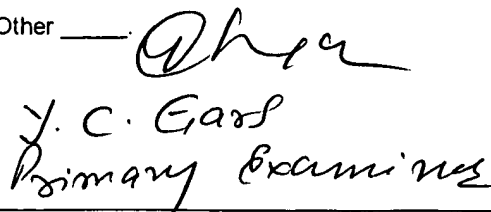 Other _____.
Y. C. Gars
Primary Examiner